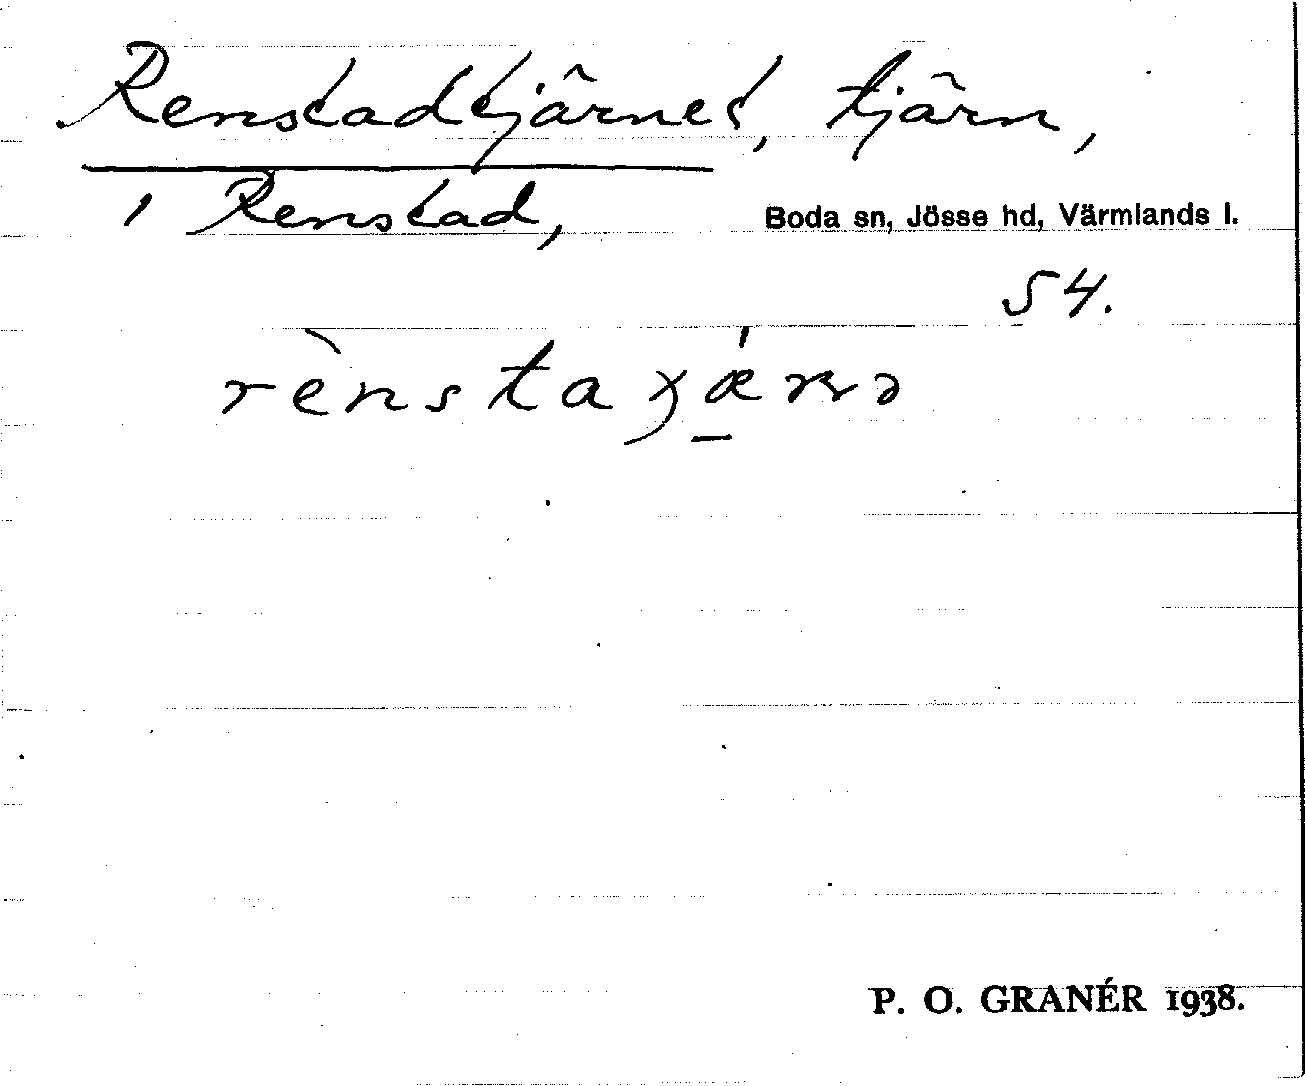 Renstadtjärnet, tjärn,
i Renstad, Boda sn, Jösse hd, Värmlands l.
54.
P. O. GRANÉR 1938.